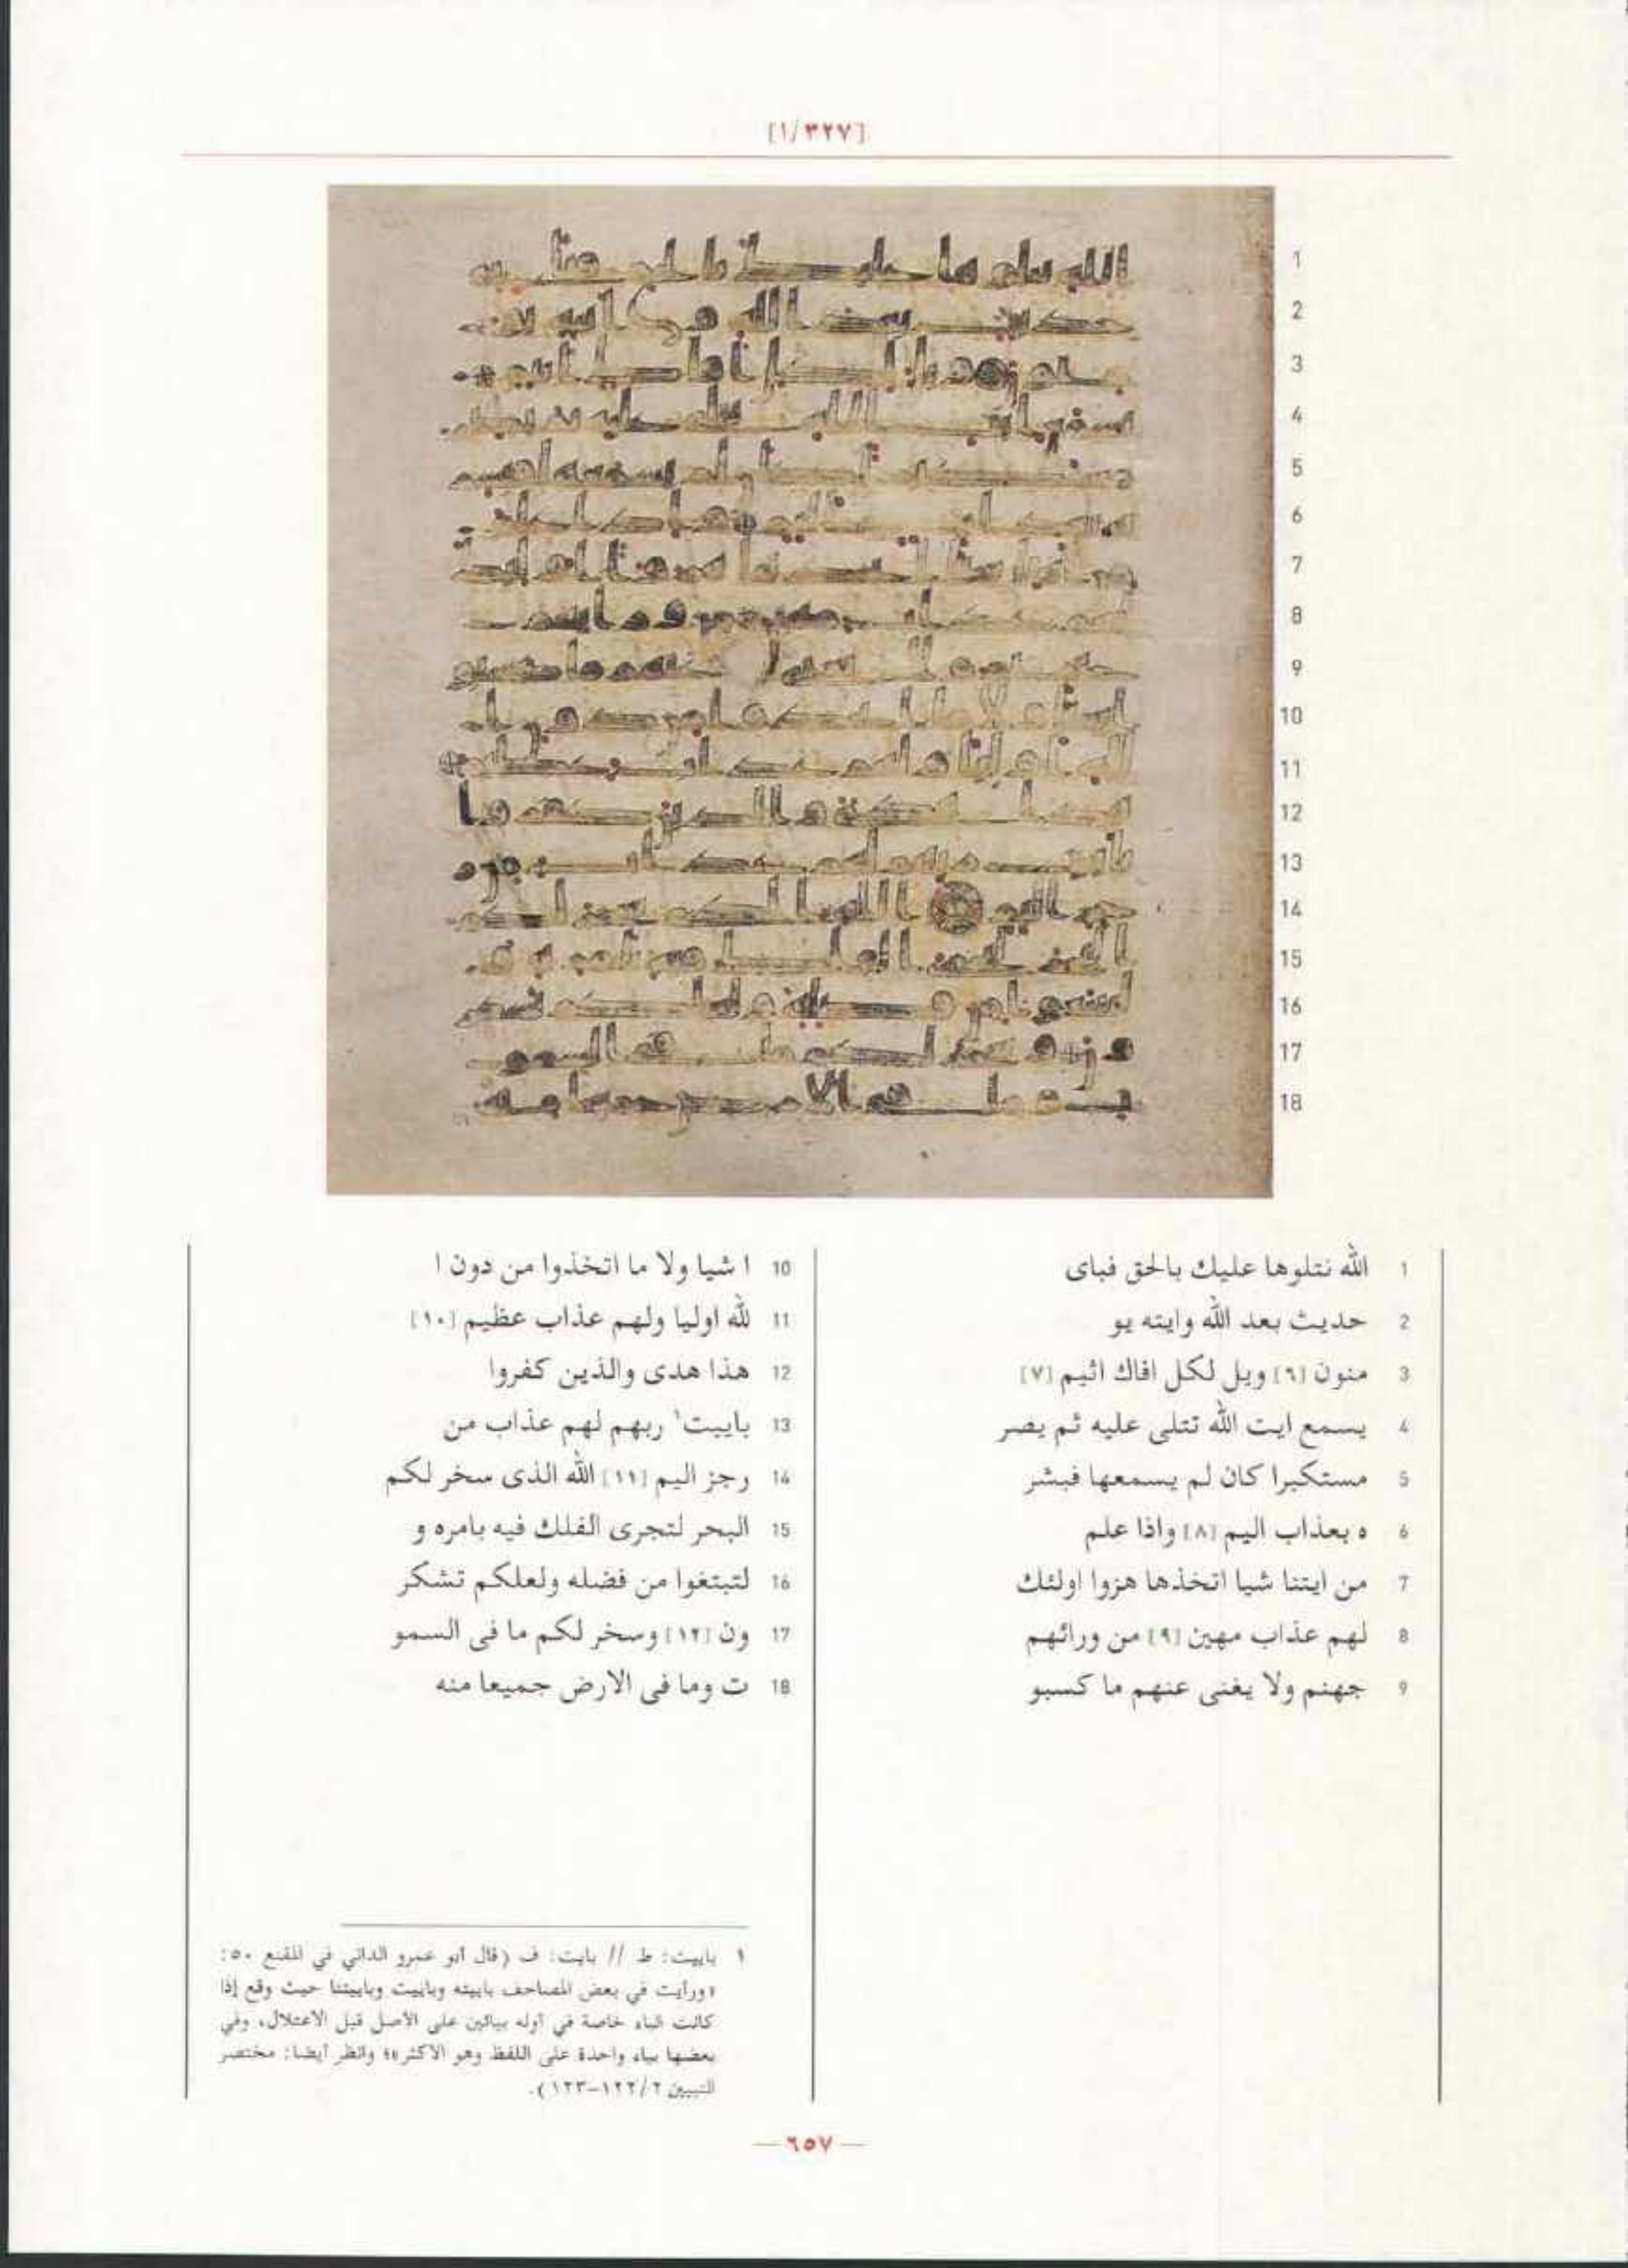 [١/٣٢٧]
1 الله نتلوها عليك بالحق فباى
2 حديث بعد الله وايته يو
3 منون [٦] ويل لكل افاك اثيم [٧]
4 يسمع ايت الله تتلى عليه ثم يصر
5 مستكبرا كان لم يسمعها فبشر
6 ه بعذاب اليم [٨] واذا علم
7 من ايتنا شيا اتخذها هزوا اولئك
8 لهم عذاب مهين [٩] من ورائهم
9 جهنم ولا يغنى عنهم ما كسبو
10 ا شيا ولا ما اتخذوا من دون ا
11 لله اوليا ولهم عذاب عظيم [١٠]
12 هذا هدى والذين كفروا
13 باييت١ ربهم لهم عذاب من
14 رجز اليم [١١] الله الذى سخر لكم
15 البحر لتجرى الفلك فيه بامره و
16 لتبتغوا من فضله ولعلكم تشكر
17 ون [١٢] وسخر لكم ما فى السمو
18 ت وما فى الارض جميعا منه
١ باييت: ط // بايت: ف (قال أبو عمرو الداني في المقنع ٥٠:
«ورأيت في بعض المصاحف باييته وباييت وباييتنا حيث وقع إذا
كانت الباء خاصة في أوله بيائين على الأصل قبل الاعتلال، وفي
بعضها بياء واحدة على اللفظ وهو الأكثر»؛ وانظر أيضا: مختصر
التبيين ٢/١٢٢-١٢٣).
— ٦٥٧ —